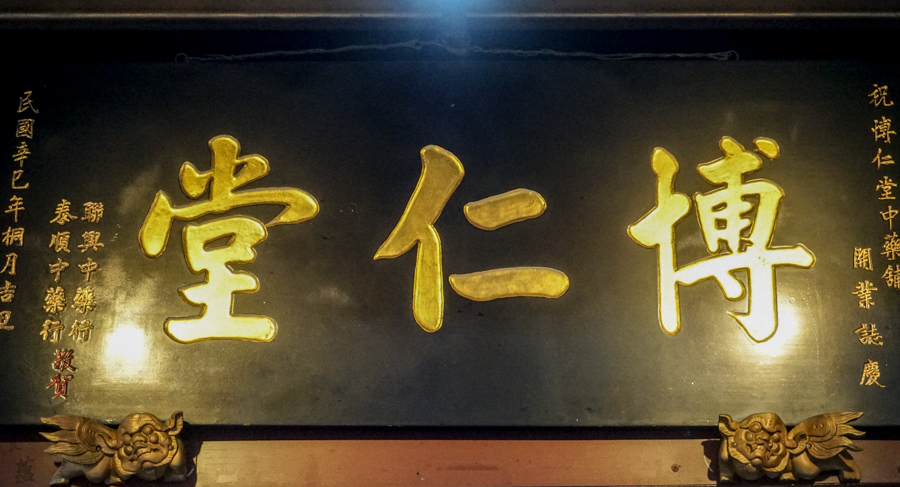 祝博仁堂中藥舖
開業誌慶
博仁堂
聯興中藥行
泰順中藥行
敬賀
民國辛巳年桐月吉旦